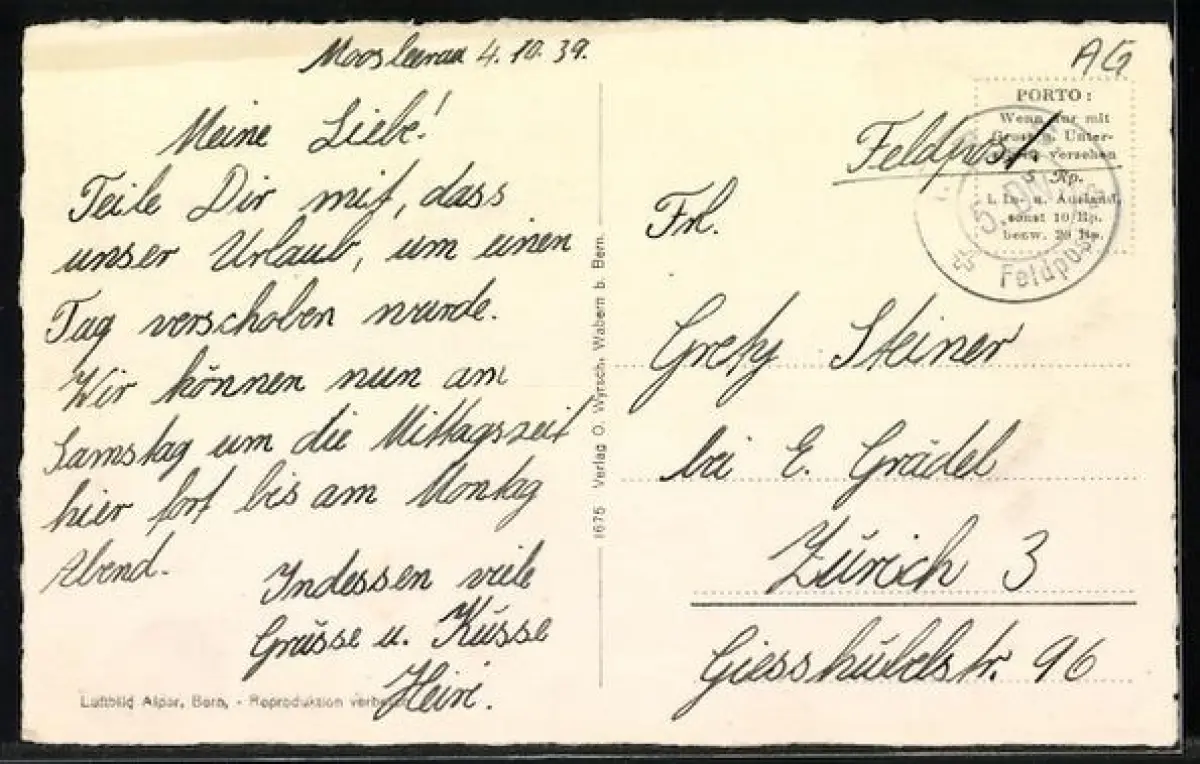 Moosleerau 4.10.39.
Meine Liebe!
Teile Dir mit, dass
unser Urlaub, um einen
Tag verschoben wurde.
Wir können nun am
Samstag um die Mittagszeit
hier fort bis am Montag
Abend.
Indessen viele
Grüsse u. Küsse
Heiri.
Luftbild Alpar, Bern, - Reproduktion
1675 Verlag O. Wyrsch, Wabern b. Bern.
AG
PORTO:
Wenn nur mit
Gruss u. Unter-
versehen
5 Rp.
i. In- u. Ausland,
sonst 10 Rp.
bezw. 20 Rp.
Feldpost
Feldpost
Frl.
Grety Steiner
bei E. Grädel
Zürich 3
Giesshübelstr. 96